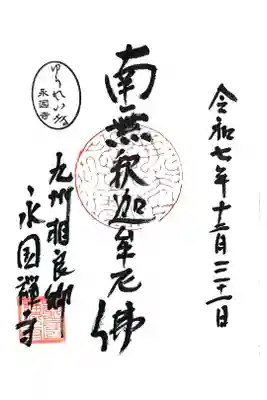 令和七年十二月三十一日
南無釈迦牟尼佛
ゆうれい寺
永国寺
九州相良郷
永国禅寺